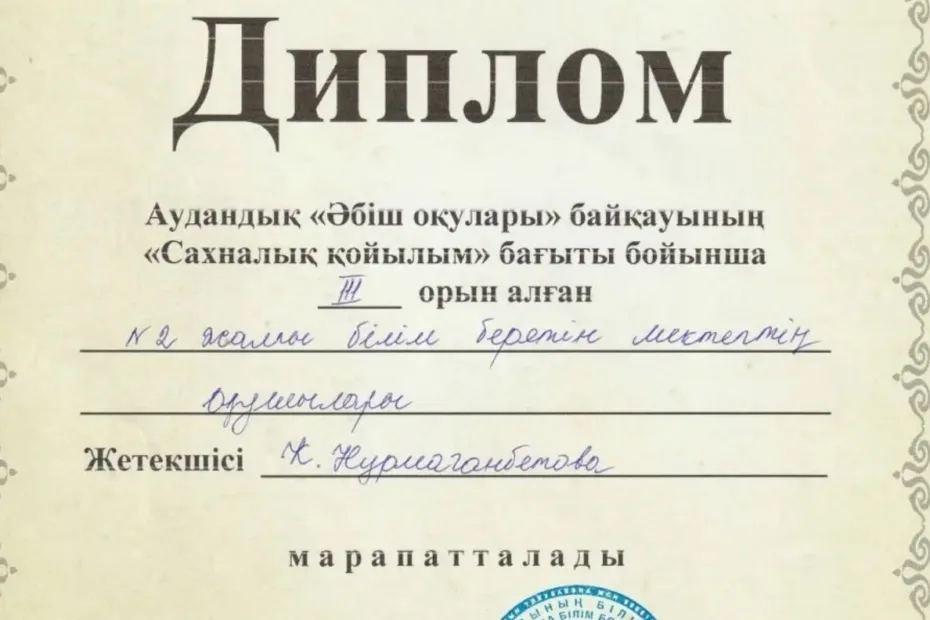 Диплом
Аудандық «Әбіш оқулары» байқауының
«Сахналық қойылым» бағыты бойынша
III орын алған
№2 жалпы білім беретін мектептің
оқушылары
Жетекшісі К. Нурмаганбетова
марапатталады